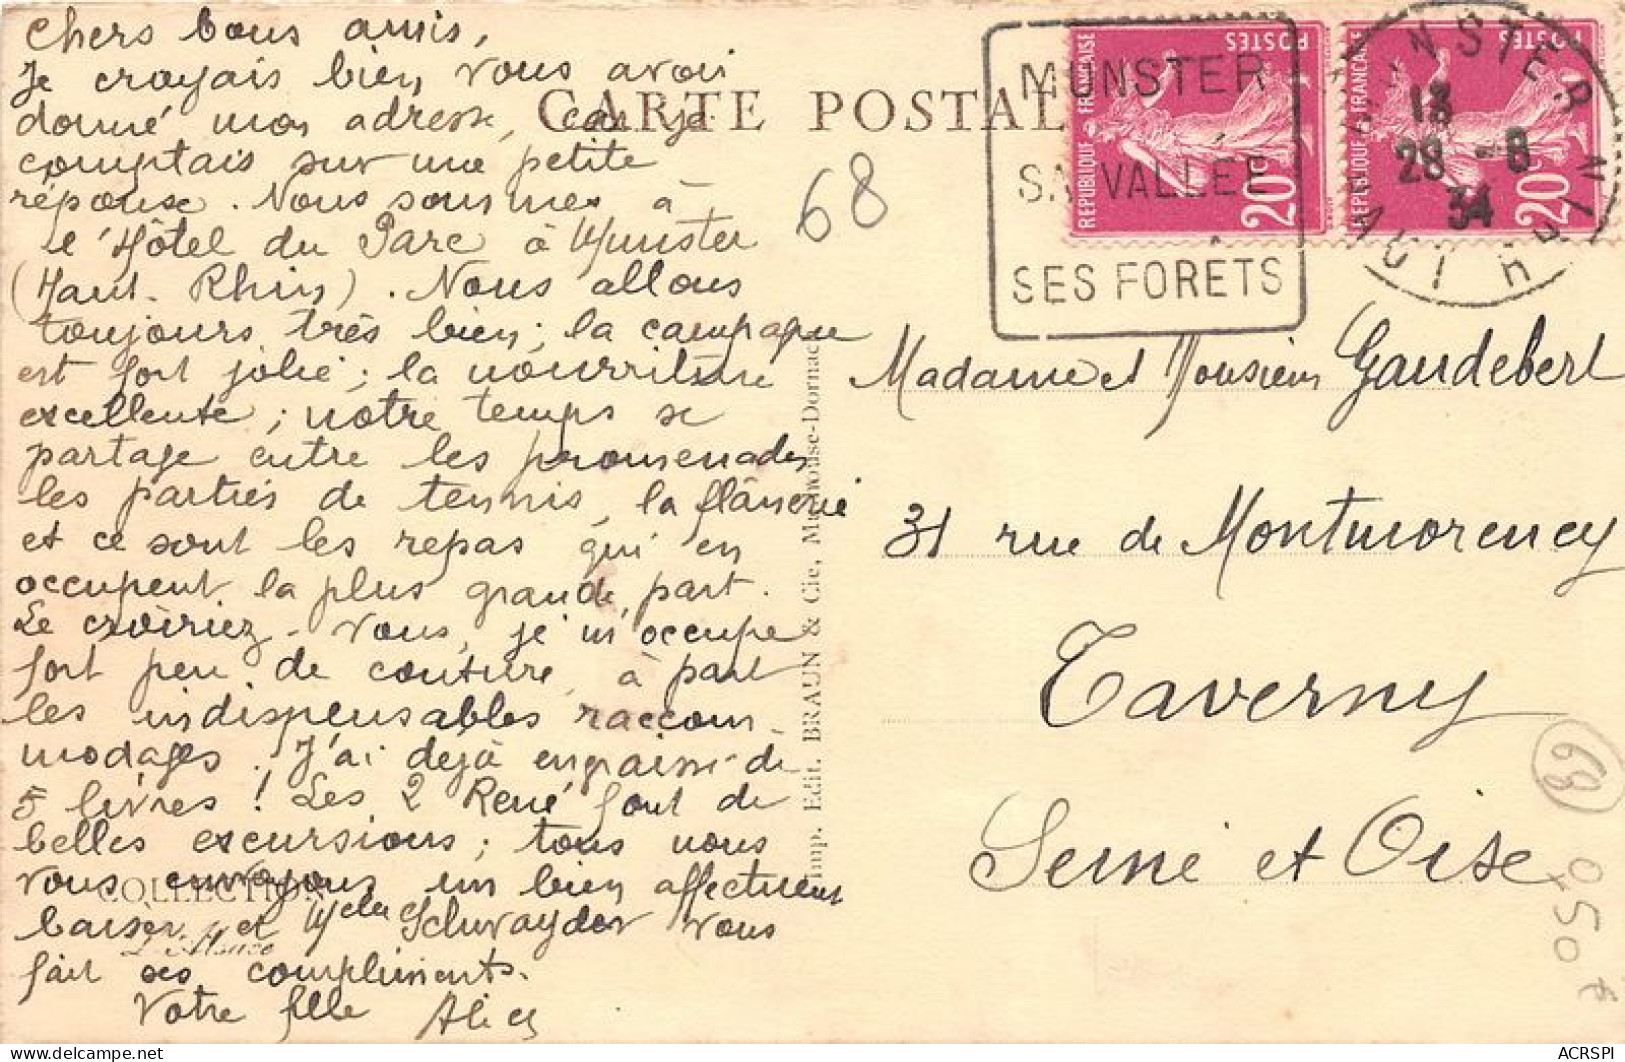 Chers bons amis,
Je croyais bien vous avoir
donné mon adresse, car je
comptais sur une petite
réponse. Nous sommes à
l'Hôtel du Parc à Munster
(Haut-Rhin). Nous allons
toujours très bien; la campagne
est fort jolie; la nourriture
excellente; notre temps se
partage entre les promenades
les parties de tennis, la flânerie
et ce sont les repas qui en
occupent la plus grande part.
Le croiriez-vous, je m'occupe
fort peu de couture, à part
les indispensables raccom-
modages. J'ai déjà engraissé de
5 livres! Les 2 René font de
belles excursions; tous nous
vous envoyons un bien affectueux
baiser et Schwayder vous
fait ses compliments.
Votre fille Alice
CARTE POSTAL
COLLECTION
L'Alsace
Imp. Edit. BRAUN & Cie, Mulhouse-Dornac
68
MUNSTER
SA VALLÉE
SES FORETS
REPUBLIQUE FRANCAISE
POSTES
20c
REPUBLIQUE FRANCAISE
POSTES
20c
MUNSTER
13
28 -8
34
HAUT RHIN
Madame et Monsieur Gaudebert
31 rue de Montmorency
Taverny
Seine et Oise
68
ACRSPI
© delcampe.net